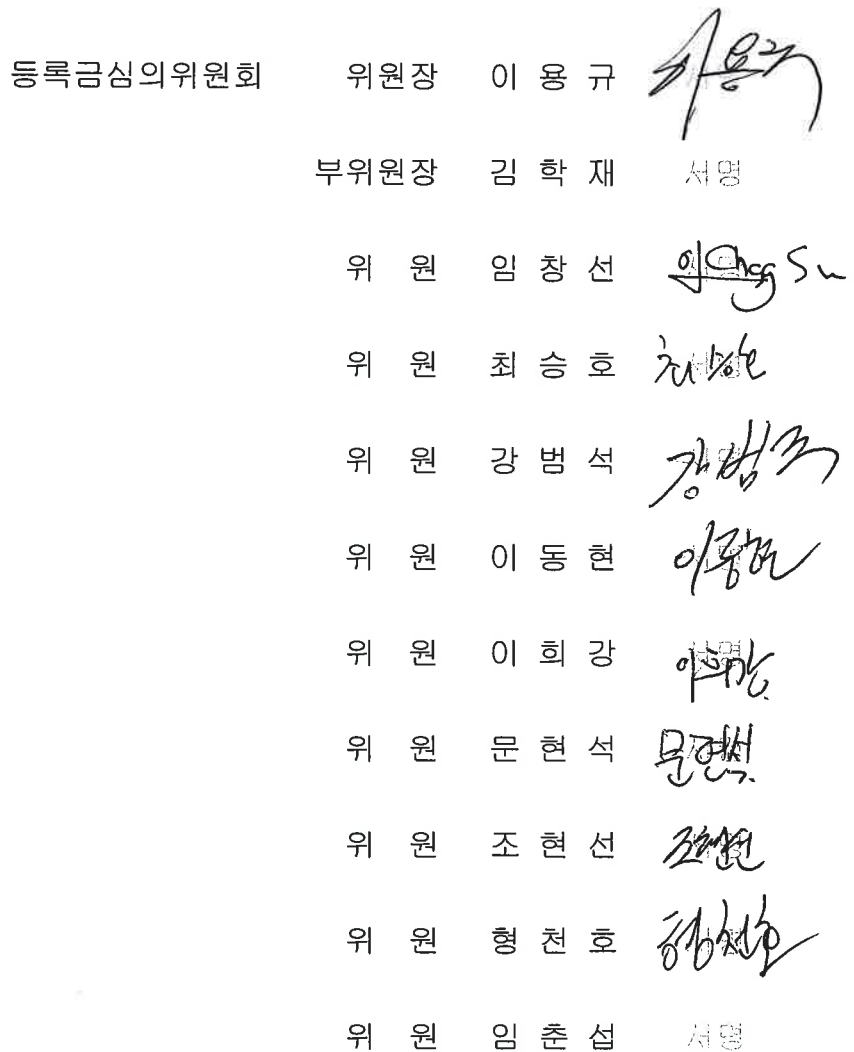 등록금심의위원회 위원장 이 용 규 이용규
부위원장 김 학 재 서명
위 원 임 창 선 임Chang Su
위 원 최 승 호 최승호
위 원 강 범 석 강범석
위 원 이 동 현 이동현
위 원 이 희 강 이희강
위 원 문 현 석 문현석
위 원 조 현 선 조현선
위 원 형 천 호 형천호
위 원 임 춘 섭 서명